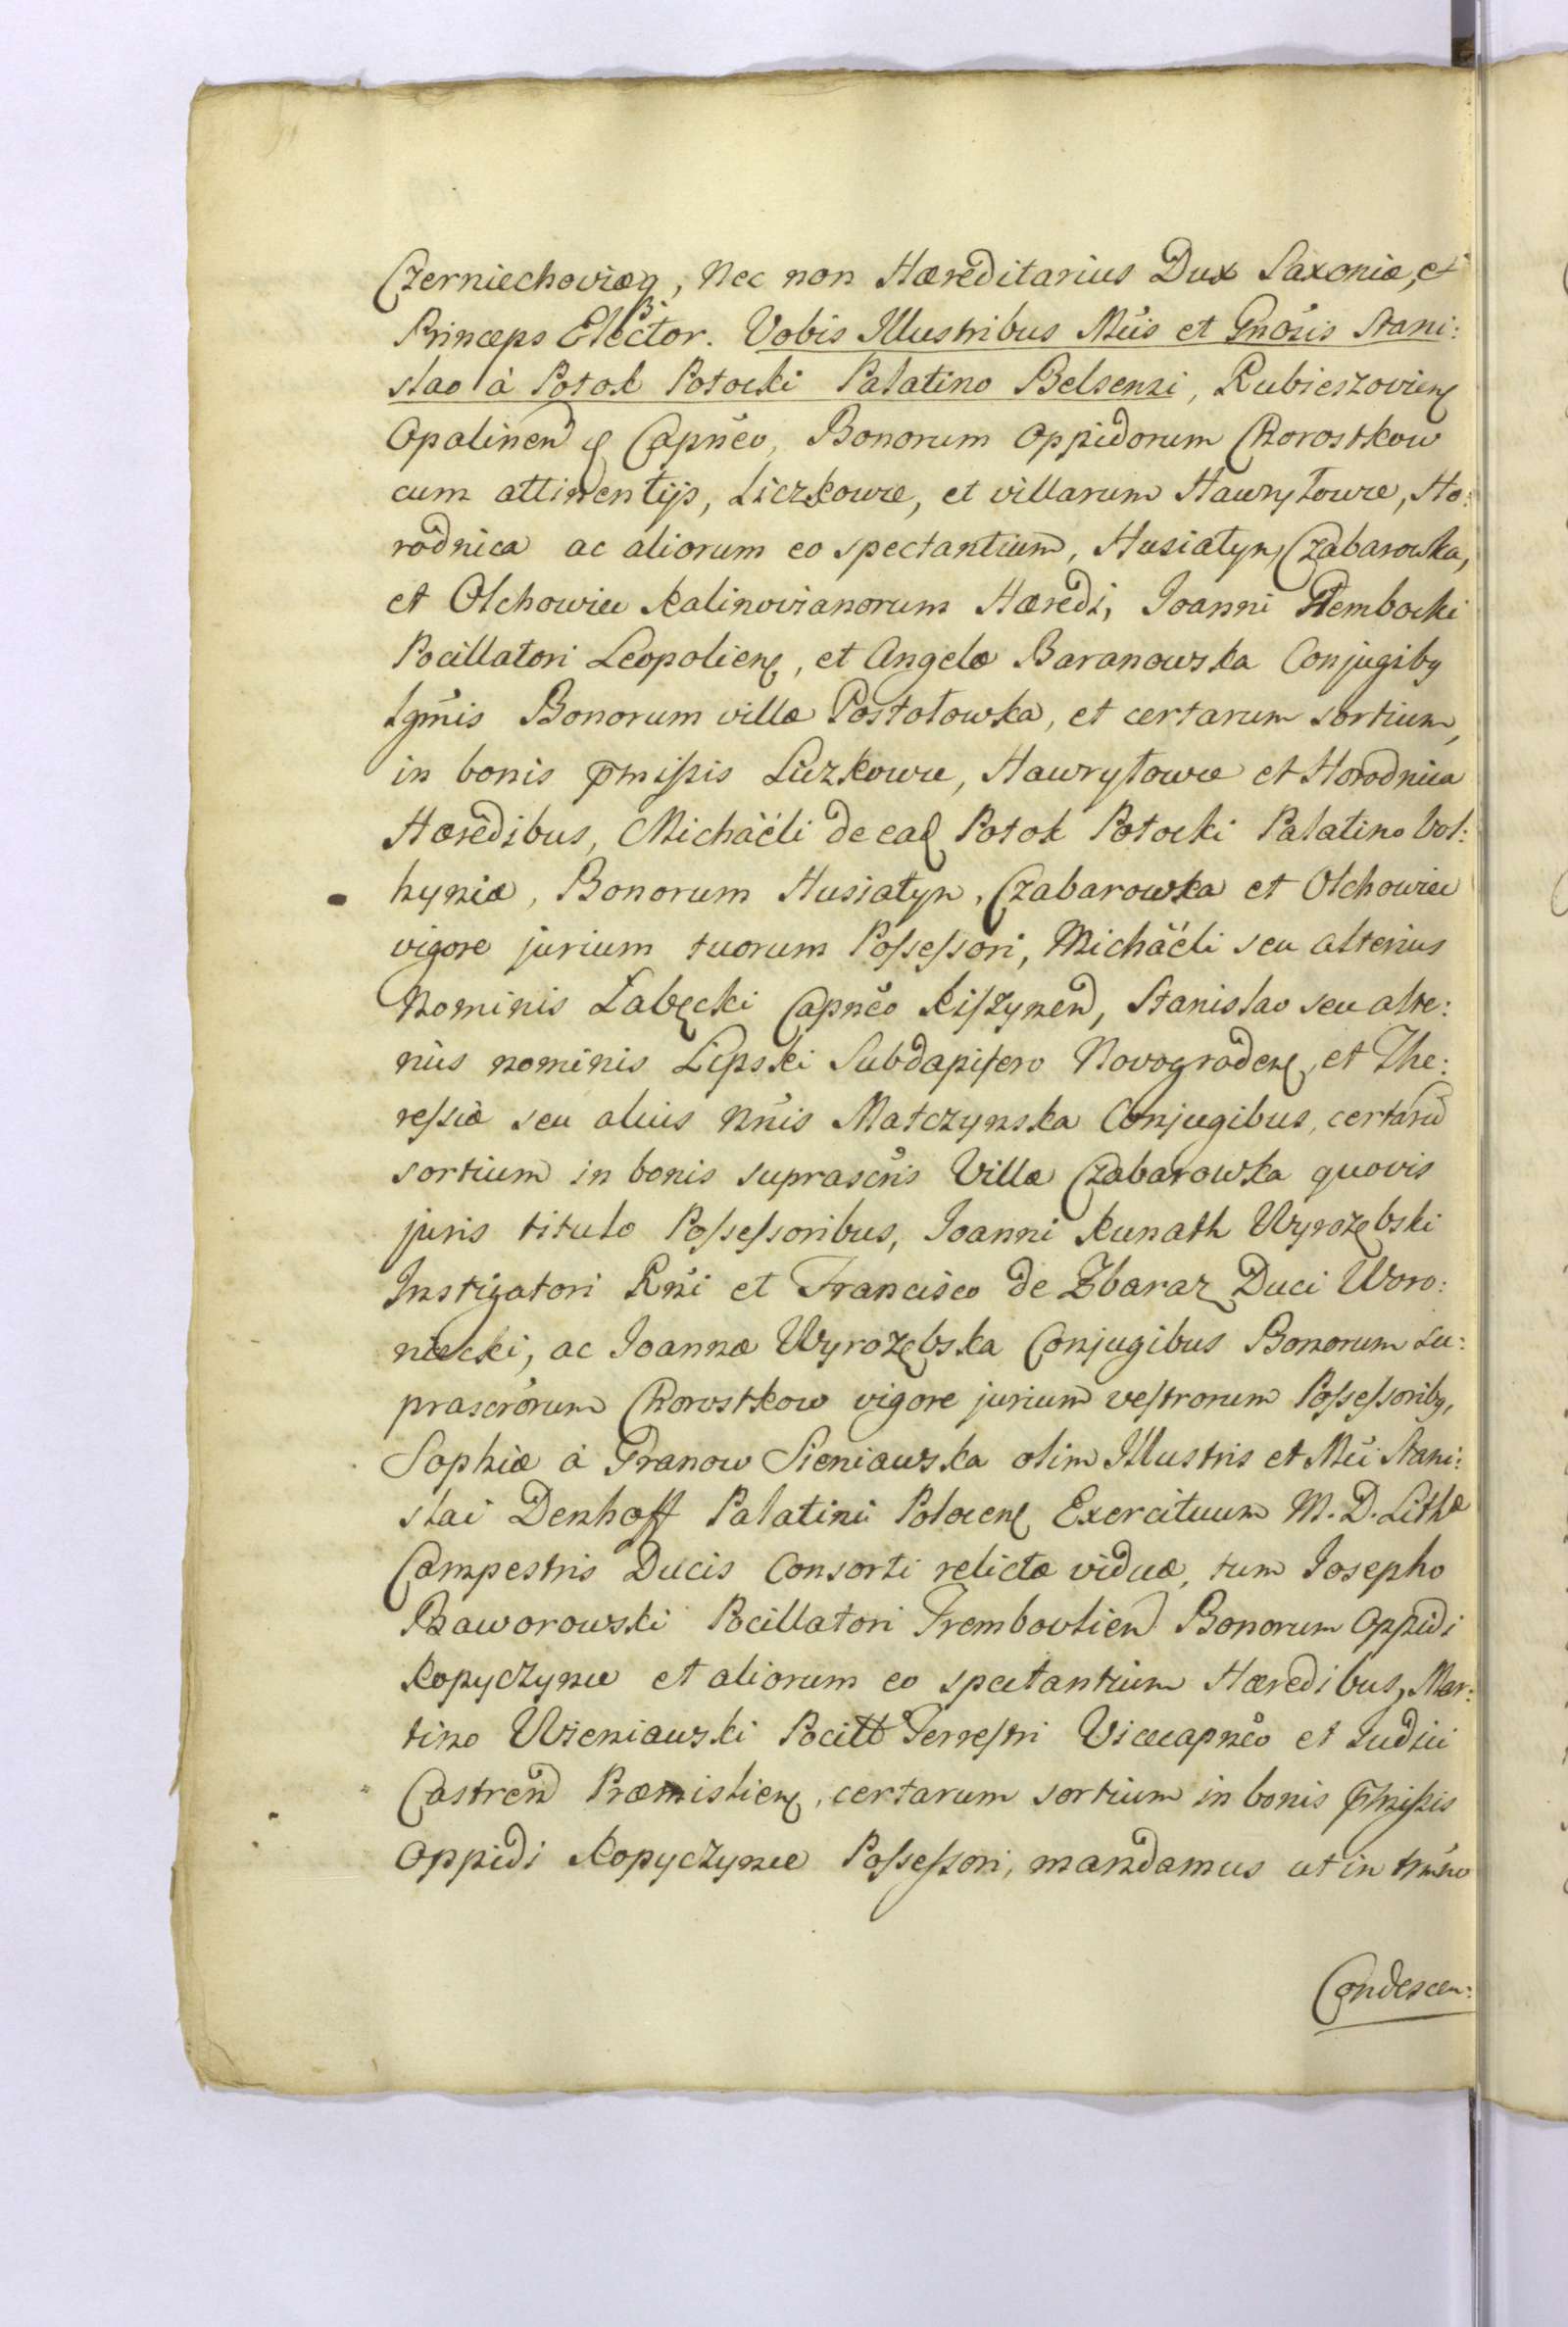 Czerniechoviæq, Nec non Hæreditarius Dux Saxoniæ, et
Princeps Elector. Vobis Illustribus Mcis et Gnosis Stani:
slao à Potok Potocki Palatino Belsensi, Rubieszovien
Opalinen & Capneo, Bonorum Oppidorum Chorostkow
cum attinentijs, Liczkowce, et villarum Hawryłowce, Ho:
rodnica ac aliorum eo spectantium, Husiatyn, Czabarowka,
et Olchowiec Kalinovianorum Hæredi, Joanni Dembocki
Pocillatori Leopolien, et Angelæ Baranowska Conjugibq
Lgmis Bonorum villæ Postołowka, et certarum sortium,
in bonis pmissis Liczkowce, Hawryłowce et Horodnica
Hæredibus, Michaëli de ead Potok Potocki Palatino Vol:
hyniæ, Bonorum Husiatyn, Czabarowka et Olchowiec
vigore jurium tuorum Possessori, Michaëli seu alterius
Nominis Łabęcki Capneo Kiszynen, Stanislao seu alte:
rius nominis Lipski Subdapifero Novograden, et The:
ressiæ seu alius nnis Matczynska Conjugibus, certarū
sortium in bonis suprascris Villæ Czabarowka quovis
juris titulo Possessoribus, Joanni Kunath Wyrozębski
Instigatori Rni et Francisco de Zbaraz Duci Woro:
niecki, ac Joannæ Wyrozębska Conjugibus Bonorum Su:
prascrorum Chorostkow vigore jurium vestrorum Possessoribq,
Sophiæ à Granow Sieniawska olim Illustris et Mci Stani:
slai Denhoff Palatini Polocen Exercituum M. D. Lith
Campestris Ducis Consorti relictæ viduæ, tum Josepho
Baworowski Pocillatori Trembovlien Bonorum Oppidi
Kopyczynce et aliorum eo spectantium Hæredibus, Mar:
tino Wieniawski Pocill Terrestri Vicecapneo et Judici
Castren Præmislien, certarum sortium in bonis pmissis
Oppidi Kopyczynce Possessori, mandamus ut in tmno
Condescen: